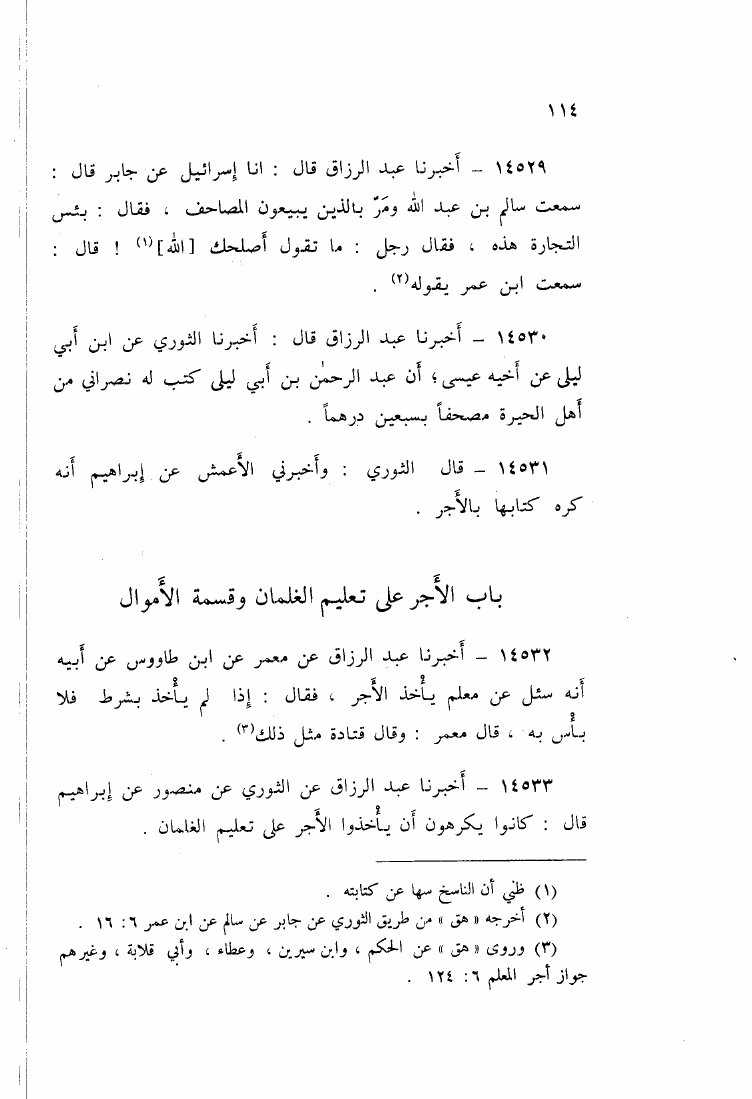 ١١٤
١٤٥٢٩ – أخبرنا عبد الرزاق قال : انا إسرائيل عن جابر قال :
سمعت سالم بن عبد الله ومَرّ بالذين يبيعون المصاحف ، فقال : بئس
التجارة هذه ، فقال رجل : ما تقول أصلحك [الله](١) ! قال :
سمعت ابن عمر يقوله(٢) .
١٤٥٣٠ – أخبرنا عبد الرزاق قال : أخبرنا الثوري عن ابن أبي
ليلى عن أخيه عيسى؛ أن عبد الرحمٰن بن أبي ليلى كتب له نصراني من
أهل الحيرة مصحفاً بسبعين درهماً .
١٤٥٣١ – قال الثوري : وأخبرني الأعمش عن إبراهيم أنه
كره كتابها بالأجر .
باب الأجر على تعليم الغلمان وقسمة الأموال
١٤٥٣٢ – أخبرنا عبد الرزاق عن معمر عن ابن طاووس عن أبيه
أنه سئل عن معلم يأخذ الأجر ، فقال : إذا لم يأخذ بشرط فلا
بأس به ، قال معمر : وقال قتادة مثل ذلك(٣) .
١٤٥٣٣ – أخبرنا عبد الرزاق عن الثوري عن منصور عن إبراهيم
قال : كانوا يكرهون أن يأخذوا الأجر على تعليم الغلمان .
(١) ظني أن الناسخ سها عن كتابته .
(٢) أخرجه « هق » من طريق الثوري عن جابر عن سالم عن ابن عمر ٦: ١٦ .
(٣) وروى « هق » عن الحكم ، وابن سيرين ، وعطاء ، وأبي قلابة ، وغيرهم
جواز أجر المعلم ٦: ١٢٤ .